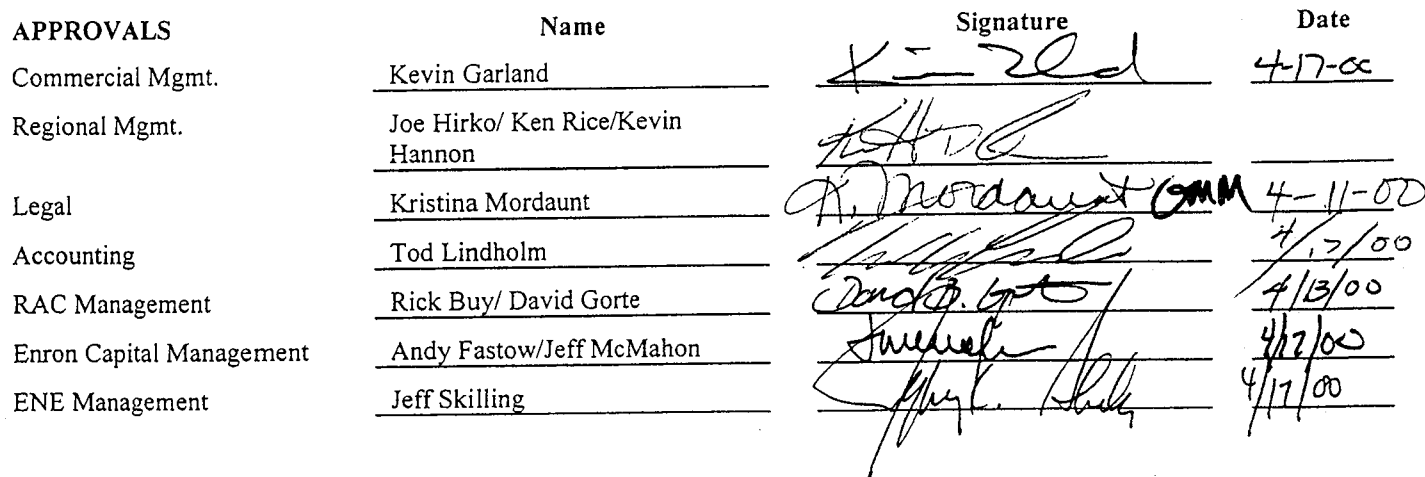 APPROVALS Name Signature Date
Commercial Mgmt. Kevin Garland 4-17-00
Regional Mgmt. Joe Hirko/ Ken Rice/Kevin
Hannon
Legal Kristina Mordaunt K. Mordaunt 4-11-00
Accounting Tod Lindholm 4/17/00
RAC Management Rick Buy/ David Gorte David B. Gorte 4/13/00
Enron Capital Management Andy Fastow/Jeff McMahon 4/17/00
ENE Management Jeff Skilling 4/17/00